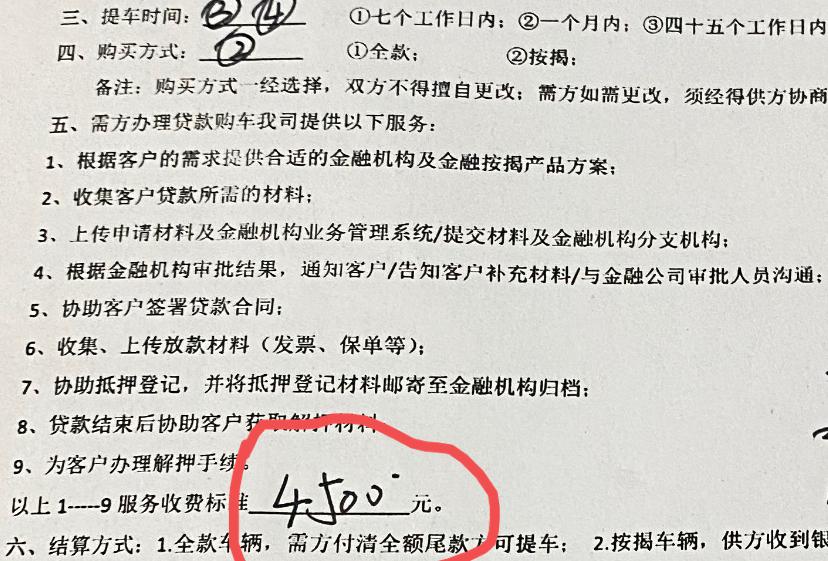 三、提车时间：③ ④ ①七个工作日内；②一个月内；③四十五个工作日内
四、购买方式：② ①全款； ②按揭；
备注：购买方式一经选择，双方不得擅自更改；需方如需更改，须经得供方协商
五、需方办理贷款购车我司提供以下服务：
1、根据客户的需求提供合适的金融机构及金融按揭产品方案；
2、收集客户贷款所需的材料；
3、上传申请材料及金融机构业务管理系统/提交材料及金融机构分支机构；
4、根据金融机构审批结果，通知客户/告知客户补充材料/与金融公司审批人员沟通；
5、协助客户签署贷款合同；
6、收集、上传放款材料（发票、保单等）；
7、协助抵押登记，并将抵押登记材料邮寄至金融机构归档；
8、贷款结束后协助客户获取解押材料
9、为客户办理解押手续。
以上 1-----9 服务收费标准 4500 元。
六、结算方式：1.全款车辆，需方付清全额尾款方可提车； 2.按揭车辆，供方收到银